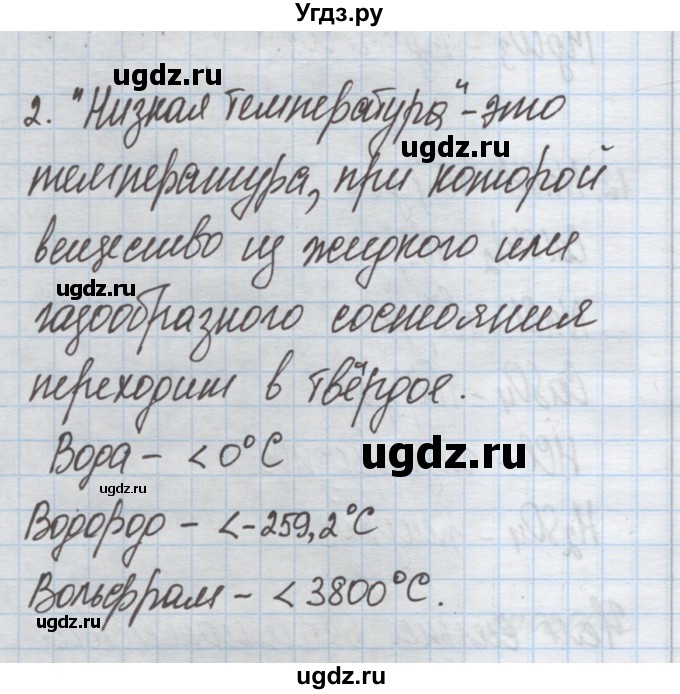 Угдз.ру
ugdz.ru
2. "Низкая температура" - это
ugdz.ru
температура, при которой
вещество из жидкого или
ugdz.ru
газообразного состояния
переходит в твёрдое.
Вода - <0°С
ugdz.ru
ugdz.ru
Водород - <-259,2°С
ugdz.ru
Вольфрам - <3800°С.
ugdz.ru